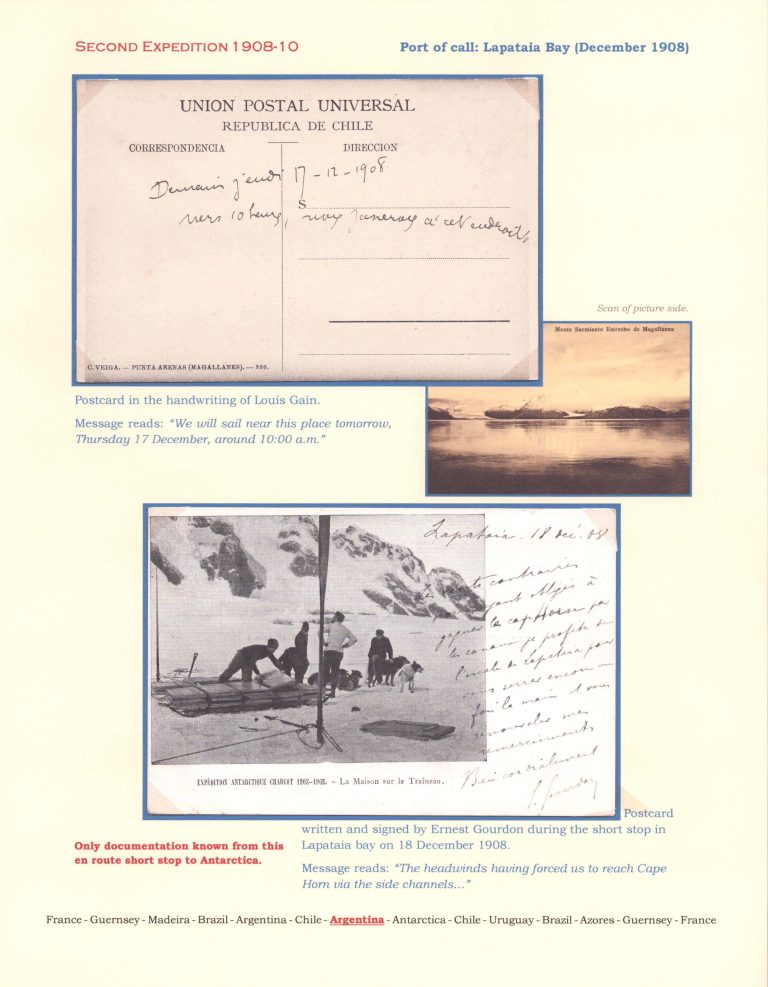 SECOND EXPEDITION 1908-10
Port of call: Lapataia Bay (December 1908)
UNION POSTAL UNIVERSAL
REPUBLICA DE CHILE
CORRESPONDENCIA
DIRECCION
Demain jeudi 17-12-1908
S
vers 10 heures, nous passerons à cet endroit
C. VEIGA. — PUNTA ARENAS (MAGALLANES). —
Scan of picture side.
Monte Sarmiento Estrecho de Magallanes
Postcard in the handwriting of Louis Gain.
Message reads: “We will sail near this place tomorrow,
Thursday 17 December, around 10:00 a.m.”
Lapataia. 18 déc. 08
vents contraires
ayant obligés à
gagner le cap Horn par
les canaux je profite de
l'escale de Lapataia pour
vous serrer encore une
fois la main et vous
renouveler mes
remerciements
Bien cordialement
E. Gourdon
EXPÉDITION ANTARCTIQUE CHARCOT 1903-1905. - La Maison sur le Traîneau.
Postcard
written and signed by Ernest Gourdon during the short stop in
Lapataia bay on 18 December 1908.
Only documentation known from this
en route short stop to Antarctica.
Message reads: “The headwinds having forced us to reach Cape
Horn via the side channels...”
France - Guernsey - Madeira - Brazil - Argentina - Chile - Argentina - Antarctica - Chile - Uruguay - Brazil - Azores - Guernsey - France